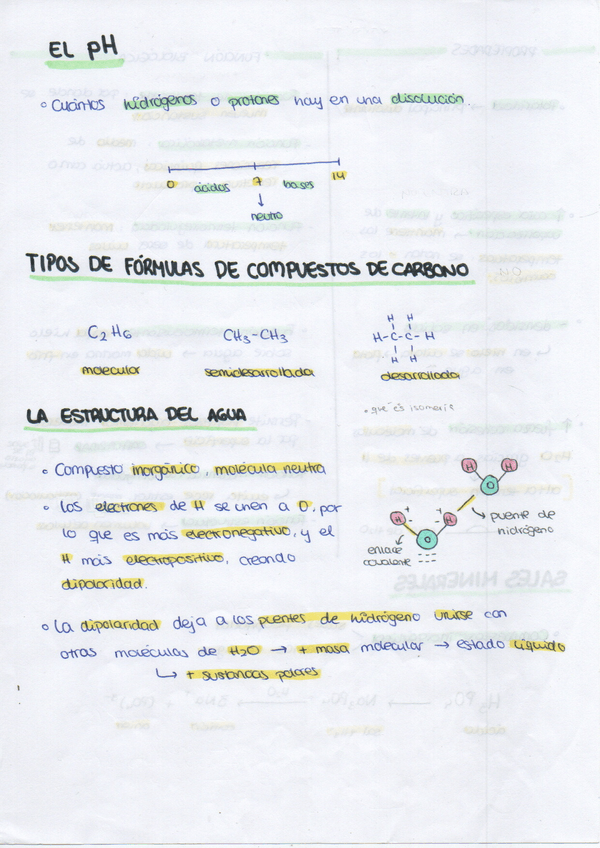 EL pH
Cuántos hidrógenos o protones hay en una disolución.
0 ácidos 7 bases 14
neutro
TIPOS DE FÓRMULAS DE COMPUESTOS DE CARBONO
C2H6
molecular
CH3-CH3
semidesarrollada
H H
H-C-C-H
H H
desarrollada
LA ESTRUCTURA DEL AGUA
que es isomería
Compuesto inorgánico, molécula neutra
Los electrones de H se unen a O, por
lo que es más electronegativo, y el
H más electropositivo, creando
dipolaridad.
H H
O
H + - - H +
O
puente de
hidrógeno
enlace
covalente
La dipolaridad deja a los puentes de hidrógeno unirse con
otras moléculas de H2O → + masa molecular → estado líquido
↳ + sustancias polares